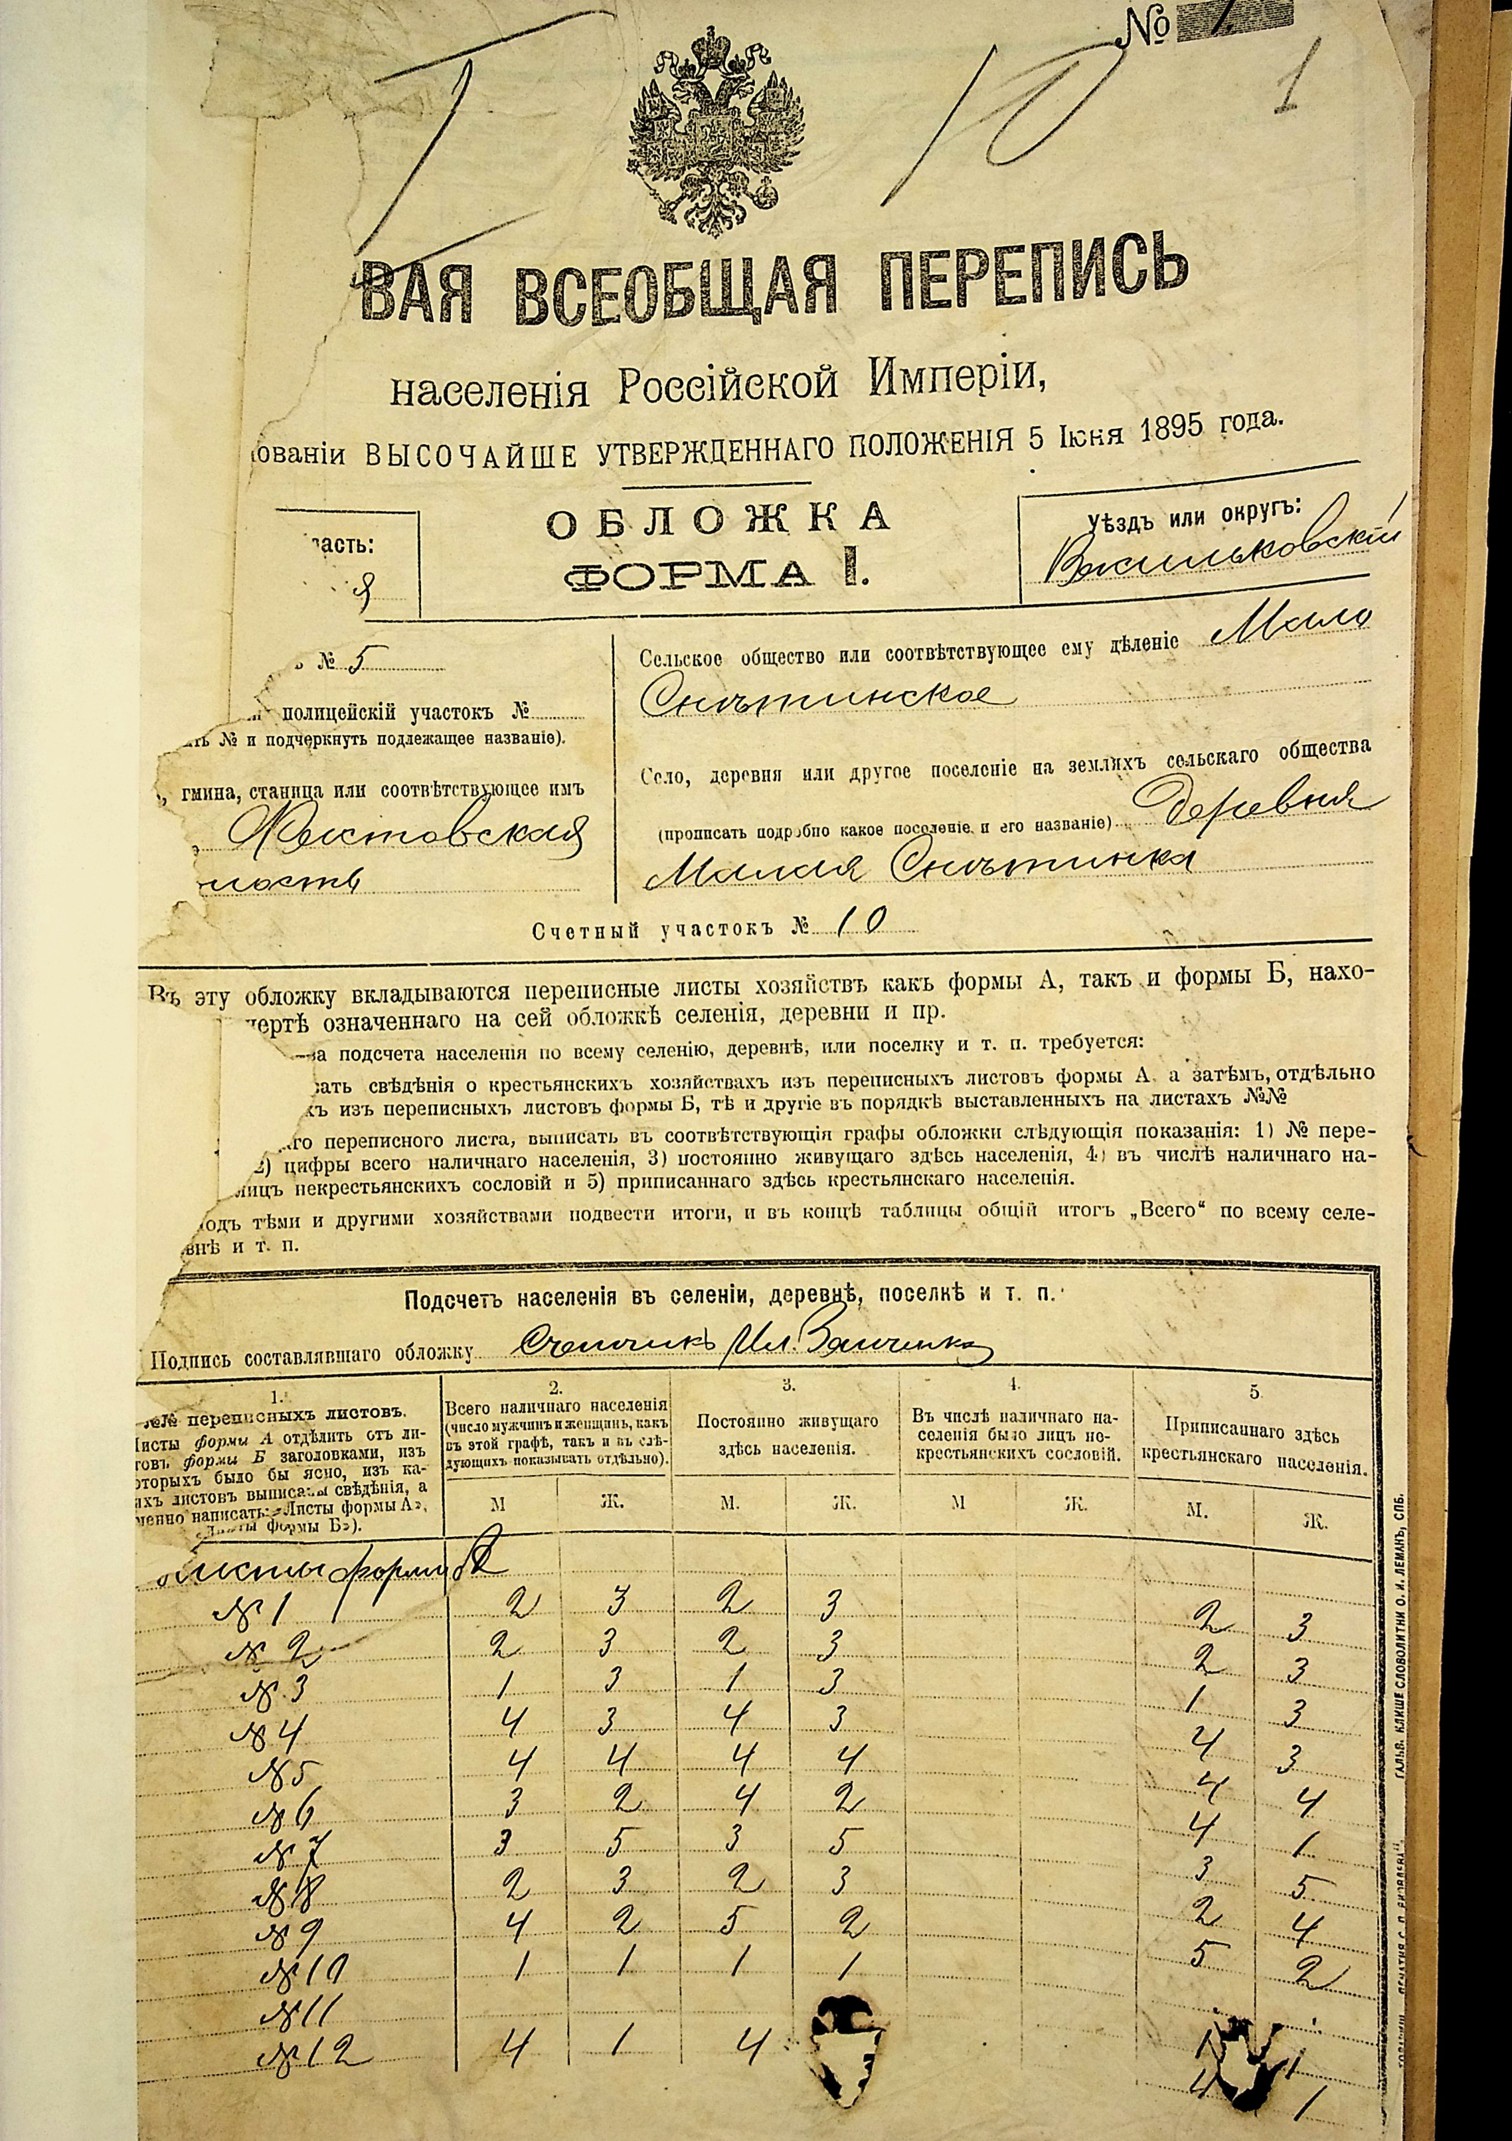 №
I 10 1
ВАЯ ВСЕОБЩАЯ ПЕРЕПИСЬ
населенія Россійской Имперіи,
ованіи ВЫСОЧАЙШЕ УТВЕРЖДЕННАГО ПОЛОЖЕНІЯ 5 Іюня 1895 года.
асть:
я
ОБЛОЖКА
ФОРМА I.
Уѣздъ или округъ:
Васильковскій
№ 5
полицейскій участокъ №
ть № и подчеркнуть подлежащее названіе).
гмина, станица или соотвѣтствующее имъ
Фастовская
лость
Сельское общество или соотвѣтствующее ему дѣленіе Мало
Снѣтинское
Село, деревня или другое поселеніе на земляхъ сельскаго общества
(прописать подробно какое поселеніе и его названіе) Деревня
Малая Снѣтинка
Счетный участокъ № 10
Въ эту обложку вкладываются переписные листы хозяйствъ какъ формы А, такъ и формы Б, нахо-
чертѣ означеннаго на сей обложкѣ селенія, деревни и пр.
на подсчета населенія по всему селенію, деревнѣ, или поселку и т. п. требуется:
сать свѣдѣнія о крестьянскихъ хозяйствахъ изъ переписныхъ листовъ формы А, а затѣмъ, отдѣльно
хъ изъ переписныхъ листовъ формы Б, тѣ и другіе въ порядкѣ выставленныхъ на листахъ №№
го переписного листа, выписать въ соотвѣтствующія графы обложки слѣдующія показанія: 1) № пере-
2) цифры всего наличнаго населенія, 3) постоянно живущаго здѣсь населенія, 4) въ числѣ наличнаго на-
лицъ некрестьянскихъ сословій и 5) приписаннаго здѣсь крестьянскаго населенія.
подъ тѣми и другими хозяйствами подвести итоги, и въ концѣ таблицы общій итогъ „Всего“ по всему селе-
внѣ и т. п.
Подсчетъ населенія въ селеніи, деревнѣ, поселкѣ и т. п.
Подпись составлявшаго обложку Счетчикъ Ил.
1.
№№ переписныхъ листовъ.
Листы формы А отдѣлить отъ ли-
товъ формы Б заголовками, изъ
оторыхъ было бы ясно, изъ ка-
ихъ листовъ выписаны свѣдѣнія, а
менно написать: «Листы формы А»,
«Листы формы Б»).
2.
Всего наличнаго населенія
(число мужчинъ и женщинъ, какъ
въ этой графѣ, такъ и въ слѣ-
дующихъ показывать отдѣльно).
3.
Постоянно живущаго
здѣсь населенія.
4.
Въ числѣ наличнаго на-
селенія было лицъ не-
крестьянскихъ сословій.
5.
Приписаннаго здѣсь
крестьянскаго населенія.
М Ж. М. Ж. М Ж. М. Ж.
Листы формы А
№ 1 2 3 2 3 2 3
№ 2 2 3 2 3 2 3
№ 3 1 3 1 3 1 3
№ 4 4 3 4 3 4 3
№ 5 4 4 4 4 4 4
№ 6 3 2 4 2 4 1
№ 7 3 5 3 5 3 5
№ 8 2 3 2 3 2 4
№ 9 4 2 5 2 5 2
№ 10 1 1 1 1 1 1
№ 11
№ 12 4 1 4 4 1
ГАЛЬВ. КЛИШЕ СЛОВОЛИТНИ О. И. ЛЕМАНЪ, СПБ.